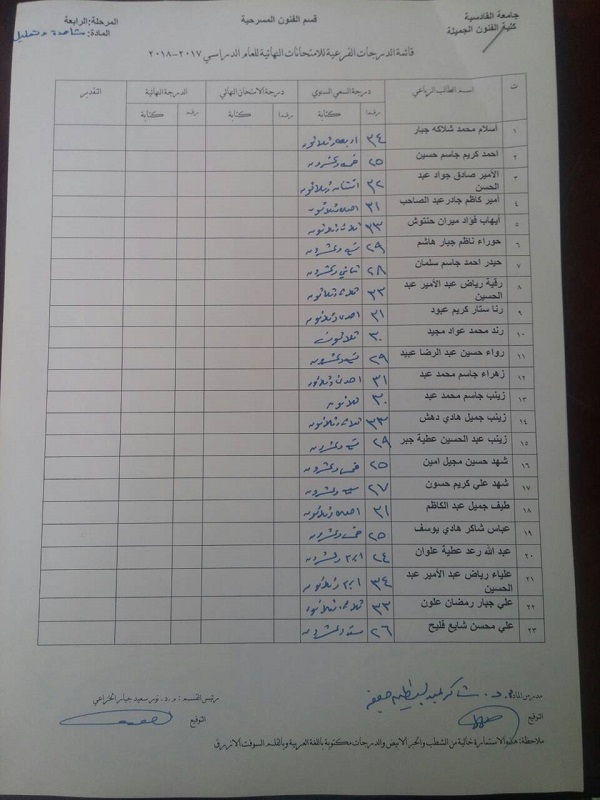 جامعة القادسية
كلية الفنون الجميلة
قسم الفنون المسرحية
المرحلة: الرابعة
المادة: مشاهدة وتحليل
قائمة الدرجات الفرعية للامتحانات النهائية للعام الدراسي ٢٠١٧-٢٠١٨
ت اسم الطالب الرباعي درجة السعي السنوي درجة الامتحان النهائي الدرجة النهائية التقدير
رقما كتابة رقما كتابة رقما كتابة
١ اسلام محمد شلاكه جبار ٣٤ اربعة وثلاثون
٢ احمد كريم جاسم حسين ٢٥ خمس وعشرون
٣ الأمير صادق جواد عبد الحسن ٣٢ اثنان وثلاثون
٤ أمير كاظم جادر عبد الصاحب ٣١ احدى وثلاثون
٥ ايهاب فؤاد ميران حنتوش ٣٣ ثلاث وثلاثون
٦ حوراء ناظم جبار هاشم ٢٩ تسعة وعشرون
٧ حيدر احمد جاسم سلمان ٢٨ ثماني وعشرون
٨ رقية رياض عبد الأمير عبد الحسين ٣٣ ثلاث وثلاثون
٩ رنا ستار كريم عبود ٣١ احدى وثلاثون
١٠ رند محمد عواد مجيد ٣٠ ثلاثون
١١ رواء حسين عبد الرضا عبيد ٢٩ تسعة وعشرون
١٢ زهراء جاسم محمد عبد ٣١ احدى وثلاثون
١٣ زينب جاسم محمد عبد ٣٠ ثلاثون
١٤ زينب جميل هادي دهش ٣٣ ثلاث وثلاثون
١٥ زينب عبد الحسين عطية جبر ٢٩ تسعة وعشرون
١٦ شهد حسين مجيل امين ٢٥ خمس وعشرون
١٧ شهد علي كريم حسون ٢٧ سبعة وعشرون
١٨ طيف جميل عبد الكاظم ٣١ احدى وثلاثون
١٩ عباس شاكر هادي يوسف ٢٥ خمس وعشرون
٢٠ عبد الله رعد عطية علوان ٢٤ اربع وعشرون
٢١ علياء رياض عبد الأمير عبد الحسين ٣٤ اربع وثلاثون
٢٢ علي جبار رمضان علون ٣٣ ثلاث وثلاثون
٢٣ علي محسن شايع فليح ٢٦ ستة وعشرون
مدرس المادة: د. شاكر عبد العظيم جعفر
التوقيع
رئيس القسم: د. نور سعيد جبار الخزاعي
التوقيع
ملاحظة: هذه الاستمارة خالية من الشطب والحبر الابيض والدرجات مكتوبة باللغة العربية وبالقلم السوفت الازرق